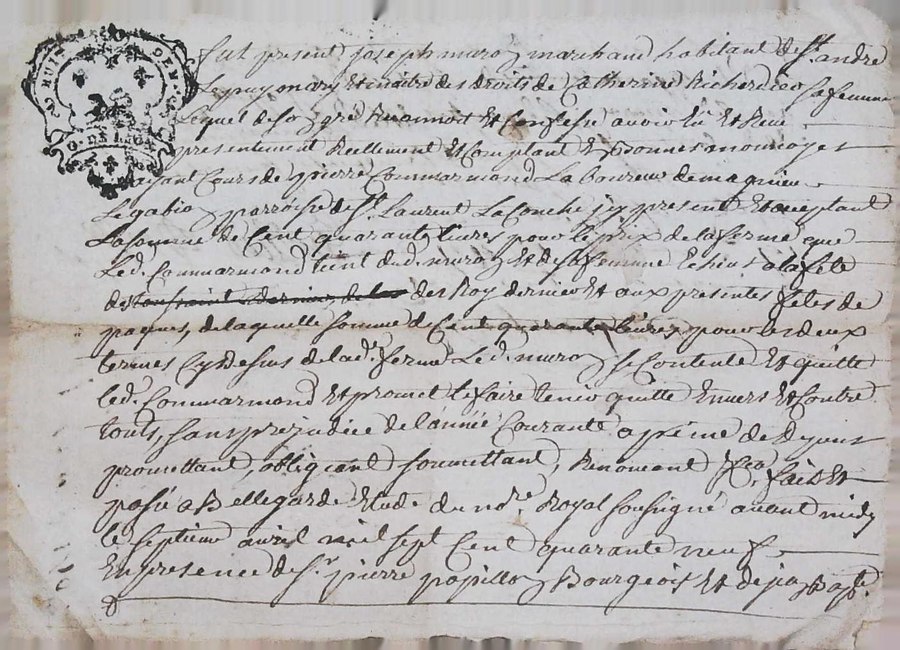 G. DE LION
fut present joseph muron marchand habitant de St. andré
Le puy mary et maitre des droits de Catherinne Richerdier sa femme
Lequel de son gré Reconnoit et Confesse avoir Eu et Reçu
presentement Reellement et Comptant En bonne monnoye
ayant Cours de pierre Commarmond Laboureur de magnieu
Le gabion parroisse de St. Laurent La Conche icy present et acceptant
La somme de Cent quarante livres pour le prix de la ferme que
Led. Commarmond tient dud. muron et de sa femme Echus a la fête
des Roy dernier et aux presentes fêtes de
paques, de laquelle somme de Cent quarante livres pour les deux
termes Cy dessus de lad. ferme Led. muron se Contente et quitte
led. Commarmond et promet le faire tenir quitte Envers et Contre
touts, sans prejudice de l'année Courante a peine de Depens
promettant, obligeant soumettant, Renonçant &ca, fait et
passé a Bellegarde Etude du nore. Royal soussigné avant midy
le septieme avril mil sept Cent quarante neuf
En presence de Sr. pierre papillon Bourgeois et de jean Bapte.